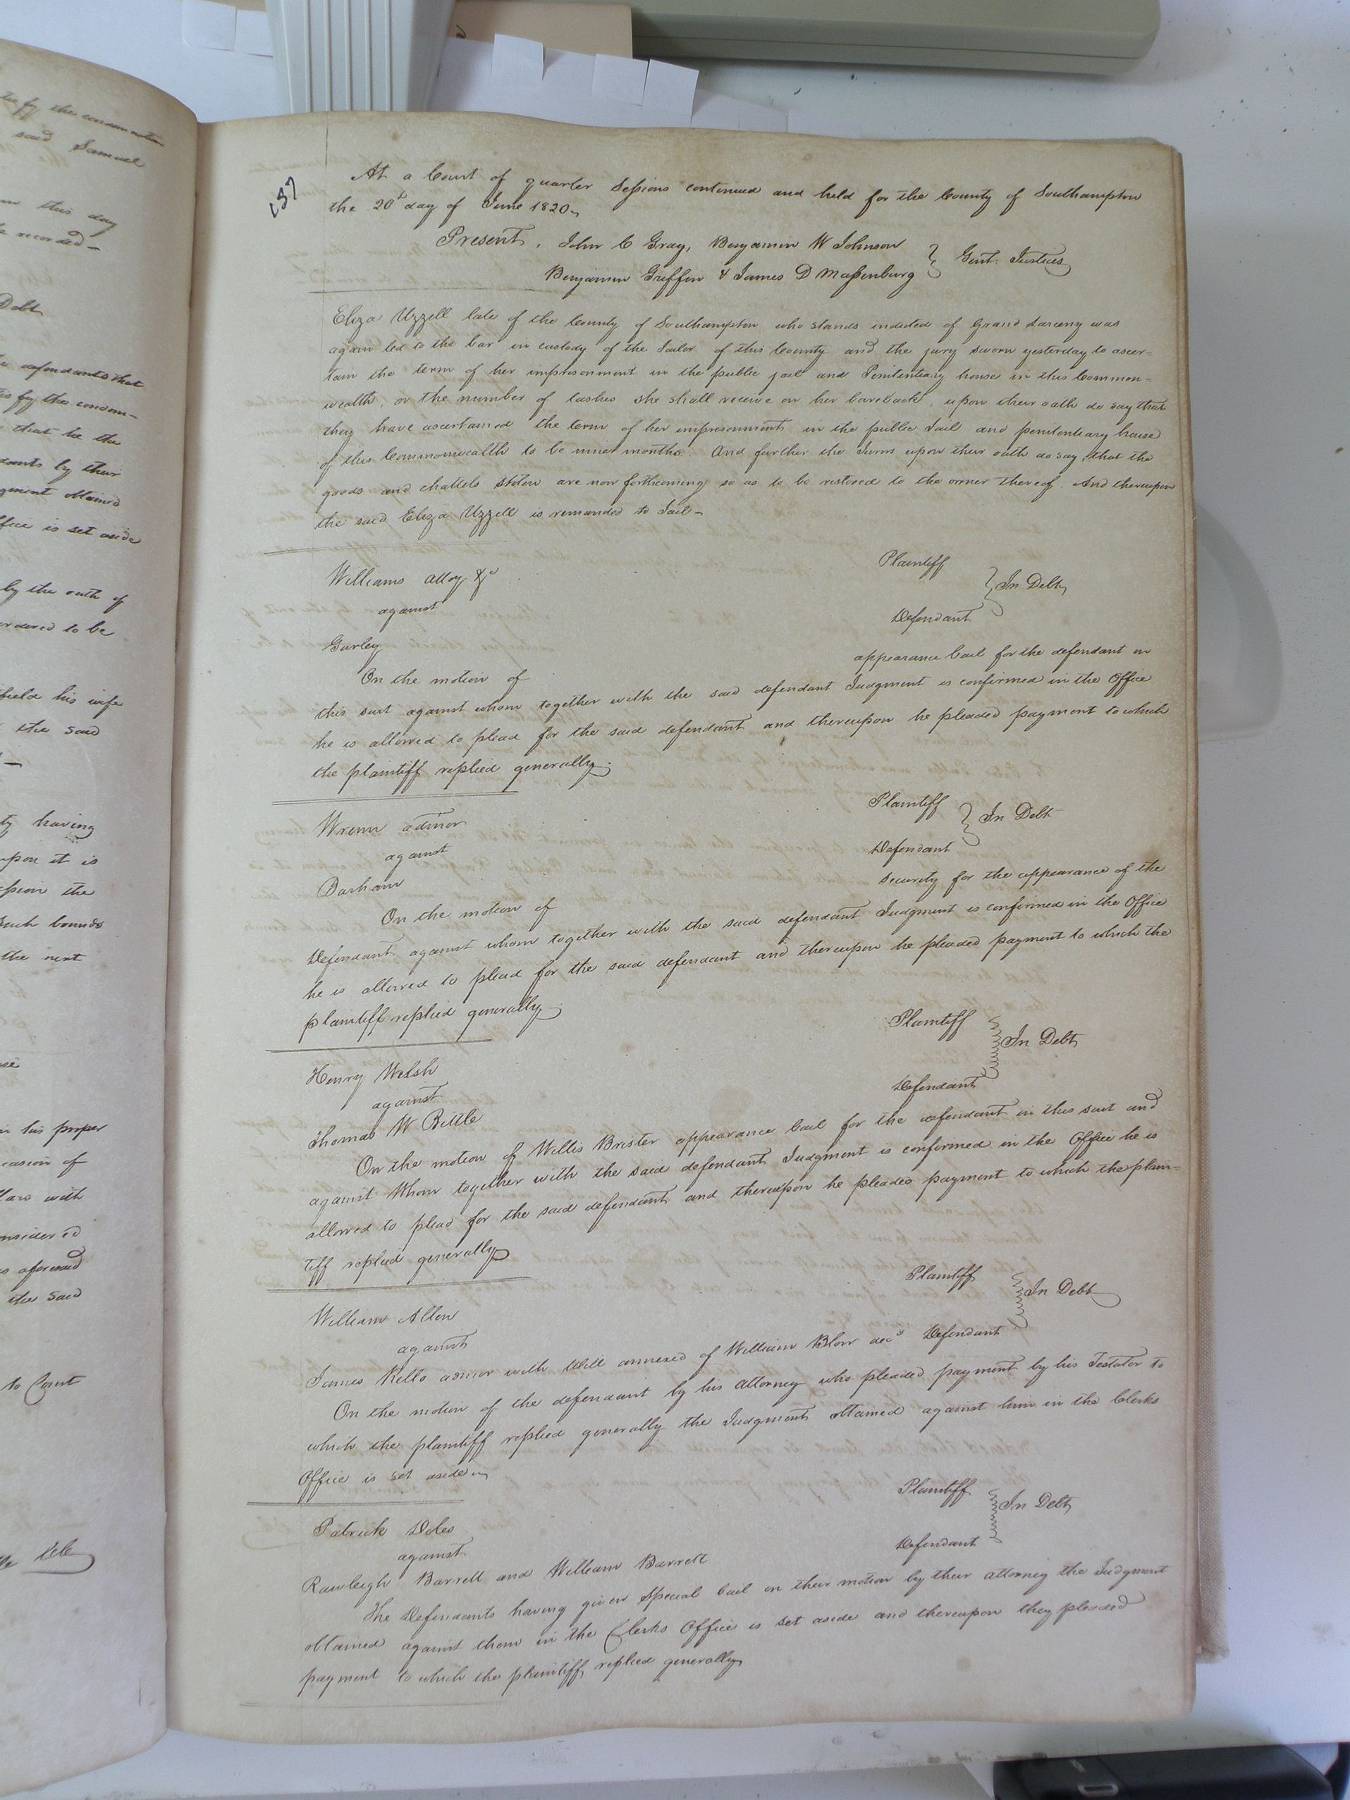 te of the condemnation
said Samuel
on this day
be recorded –
Debt
defendants that
of the condem-
that he the
dants by their
gment obtained
ffice is set aside
by the oath of
ordered to be
field his wife
the said
ty having
upon it is
ssion the
such bounds
the next
in his proper
casion of
Law with
onsidered
s aforesaid
the said
to Court
157
At a Court of quarter Sessions continued and held for the County of Southampton
the 20th day of June 1820
Present, John C Gray, Benjamin W Johnson
Benjamin Griffin & James D Massenburg } Gent. Justices
Eliza Uzzell late of the County of Southampton who stands indicted of Grand Larceny was
again led to the bar in custody of the Jailor of this County and the jury sworn yesterday to ascer-
tain the term of her imprisonment in the public jail and Penitentiary house in this Common-
wealth, or the number of lashes she shall receive on her bareback, upon their oath do say that
they have ascertained the term of her imprisonment in the public Jail and penitentiary house
of this Commonwealth to be nine months. And further the Jurors upon their oath do say, that the
goods and chattels stolen are now forthcoming so as to be restored to the owner thereof. And thereupon
the said Eliza Uzzell is remanded to Jail –
Williams assoy &c Plaintiff
against } In Debt
Gurley Defendant
On the motion of appearance bail for the defendant in
this suit against whom together with the said defendant Judgment is confirmed in the Office
he is allowed to plead for the said defendant and thereupon he pleaded payment to which
the plaintiff replied generally.
Wrenn admor Plaintiff
against } In Debt
Barham Defendant
On the motion of security for the appearance of the
Defendant against whom together with the said defendant Judgment is confirmed in the Office
he is allowed to plead for the said defendant and thereupon he pleaded payment to which the
plaintiff replied generally.
Henry Welsh Plaintiff
against } In Debt
Thomas W Bittle Defendant
On the motion of Willis Brister appearance bail for the defendant in this suit and
against Whom together with the said defendant Judgment is confirmed in the Office he is
allowed to plead for the said defendant and thereupon he pleaded payment to which the plain-
tiff replied generally
William Allen Plaintiff
against } In Debt
James Kello admor with Will annexed of William Blow decd Defendant
On the motion of the defendant by his attorney who pleaded payment by his Testator to
which the plaintiff replied generally the Judgment obtained against him in the Clerks
Office is set aside
Patrick Doles Plaintiff
against } In Debt
Rawleigh Barrett and William Barrett Defendant
The Defendants having given Special bail on their motion by their attorney the Judgment
obtained against them in the Clerks Office is set aside and thereupon they pleaded
payment to which the plaintiff replied generally